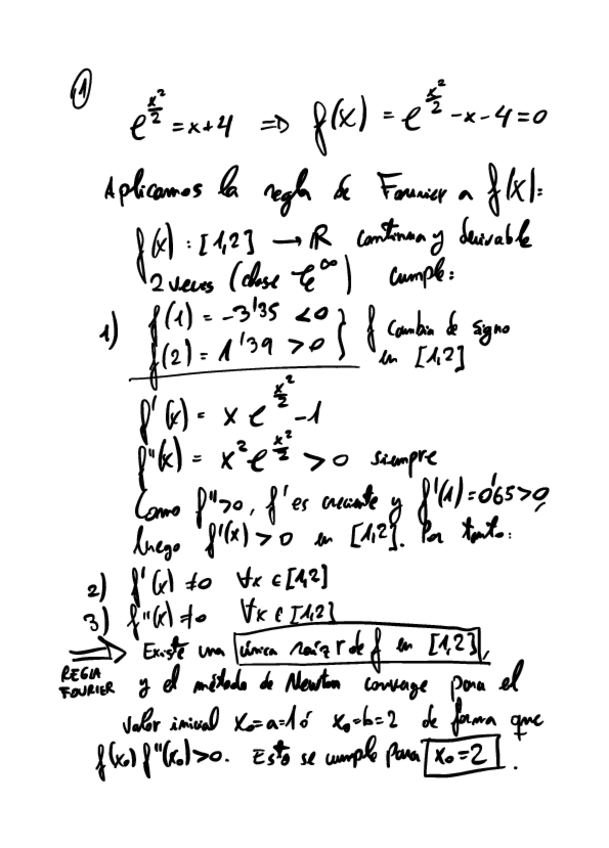 1
e^{x²/2} = x+4 ⇒ f(x) = e^{x²/2} -x-4=0
Aplicamos la regla de Fourier a f(x):
f(x) : [1,2] → ℝ continua y derivable
2 veces (clase 𝒞^∞) cumple:
1) f(1) = -3'35 <0 } f cambia de signo
f(2) = 1'39 >0 } en [1,2]
f'(x) = x e^{x²/2} -1
f''(x) = x² e^{x²/2} >0 siempre
Como f''>0, f' es creciente y f'(1)=0'65>0,
luego f'(x) >0 en [1,2]. Por tanto:
2) f'(x) ≠0 ∀x ∈ [1,2]
3) f''(x) ≠0 ∀x ∈ [1,2]
⇒ Existe una única raíz r de f en [1,2],
REGLA
FOURIER
y el método de Newton converge para el
valor inicial x₀=a=1 ó x₀=b=2 de forma que
f(x₀) f''(x₀)>0. Esto se cumple para x₀=2.